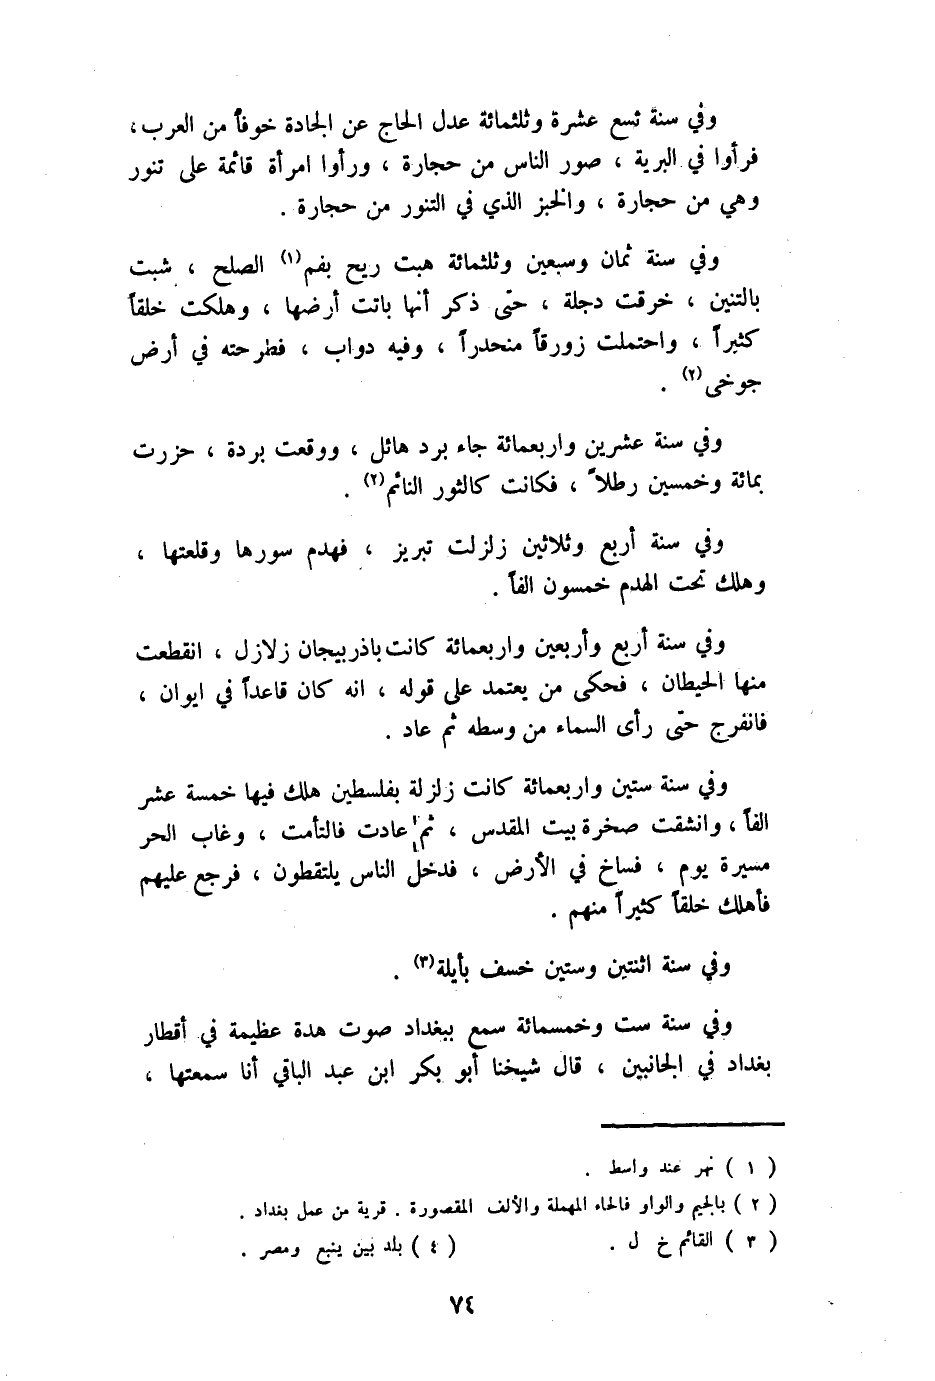 وفي سنة تسع عشرة وثلثمائة عدل الحاج عن الجادة خوفاً من العرب ،
فرأوا في البرية ، صور الناس من حجارة ، ورأوا امرأة قائمة على تنور
وهي من حجارة ، والخبز الذي في التنور من حجارة .
وفي سنة ثمان وسبعين وثلثمائة هبت ريح بفم(١) الصلح ، شبت
بالتنين ، خرقت دجلة ، حتّى ذكر أنها باتت أرضها ، وهلكت خلقاً
كثيراً ، واحتملت زورقاً منحدراً ، وفيه دواب ، فطرحته في أرض
جوخى(٢) .
وفي سنة عشرين واربعمائة جاء برد هائل ، ووقعت بردة ، حزرت
بمائة وخمسين رطلاً ، فكانت كالثور النائم(٢) .
وفي سنة أربع وثلاثين زلزلت تبريز ، فهدم سورها وقلعتها ،
وهلك تحت الهدم خمسون الفاً .
وفي سنة أربع وأربعين واربعمائة كانت باذربيجان زلازل ، انقطعت
منها الحيطان ، فحكى من يعتمد على قوله ، انه كان قاعداً في ايوان ،
فانفرج حتّى رأى السماء من وسطه ثم عاد .
وفي سنة ستين واربعمائة كانت زلزلة بفلسطين هلك فيها خمسة عشر
الفاً ، وانشقت صخرة بيت المقدس ، ثم عادت فالتأمت ، وغاب الحر
مسيرة يوم ، فساخ في الأرض ، فدخل الناس يلتقطون ، فرجع عليهم
فأهلك خلقاً كثيراً منهم .
وفي سنة اثنتين وستين خسف بأيلة(٣) .
وفي سنة ست وخمسمائة سمع ببغداد صوت هدة عظيمة في أقطار
بغداد في الجانبين ، قال شيخنا أبو بكر ابن عبد الباقي أنا سمعتها ،
( ١ ) نهر عند واسط .
( ٢ ) بالجيم والواو فالحاء المهملة والألف المقصورة . قرية من عمل بغداد .
( ٣ ) القائم خ ل . ( ٤ ) بلد بين ينبع ومصر .
٧٤